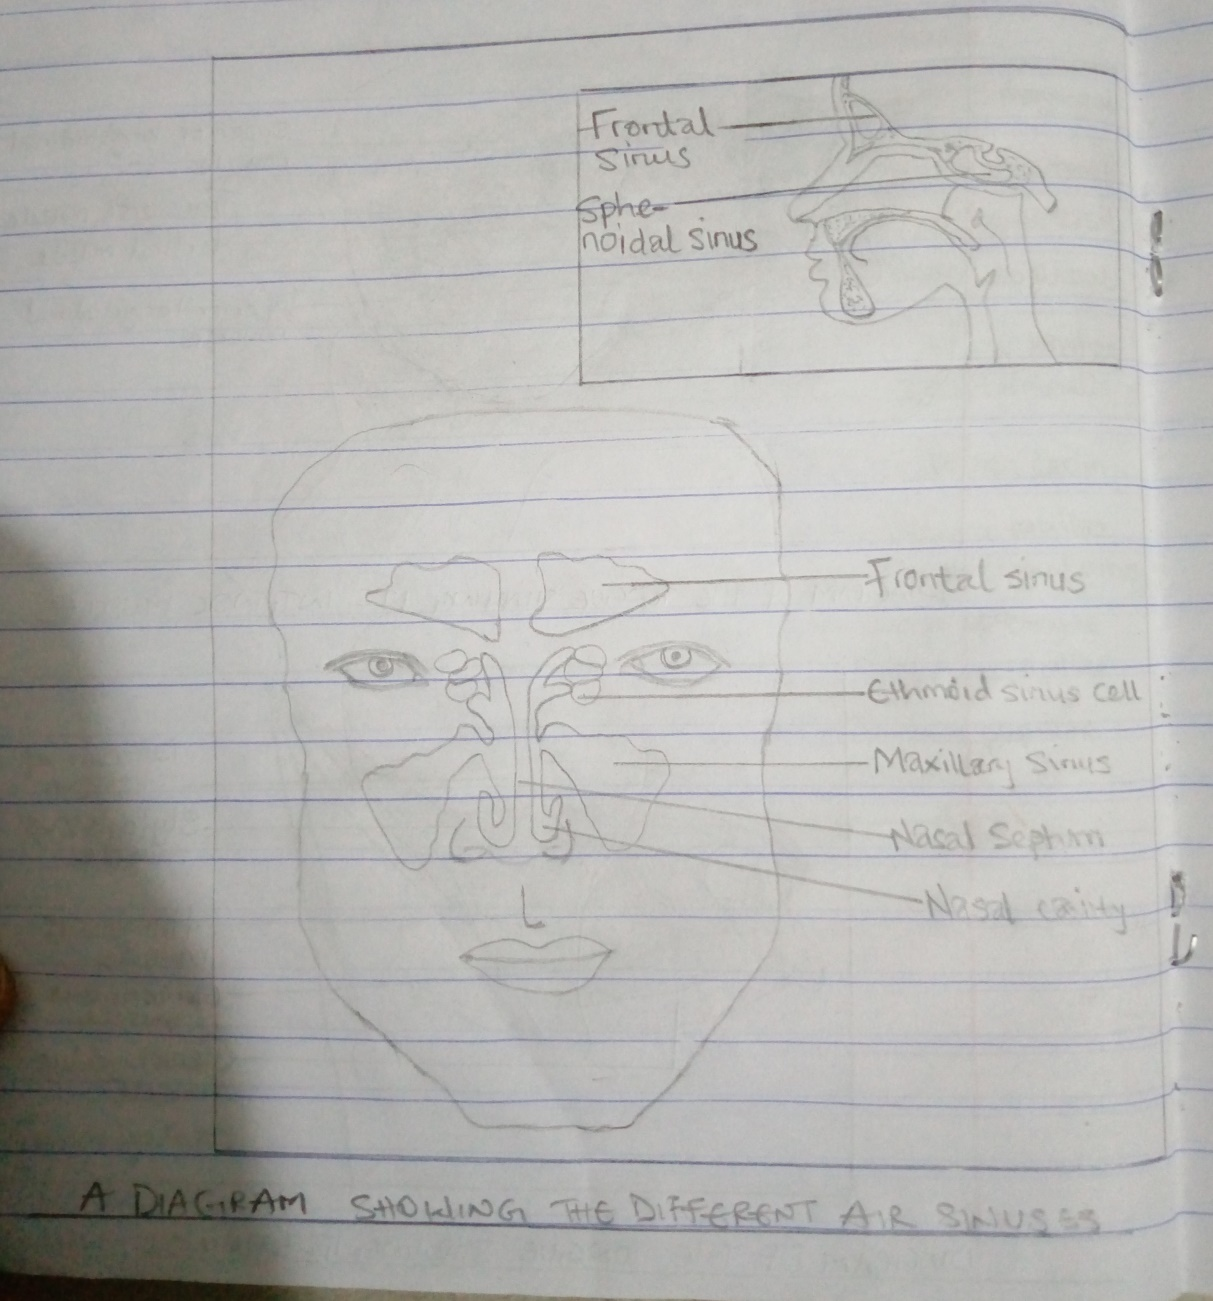 Frontal
sinus
Sphe-
noidal sinus
Frontal sinus
Ethmoid sinus cell
Maxillary sinus
Nasal Septum
Nasal cavity
A DIAGRAM SHOWING THE DIFFERENT AIR SINUSES